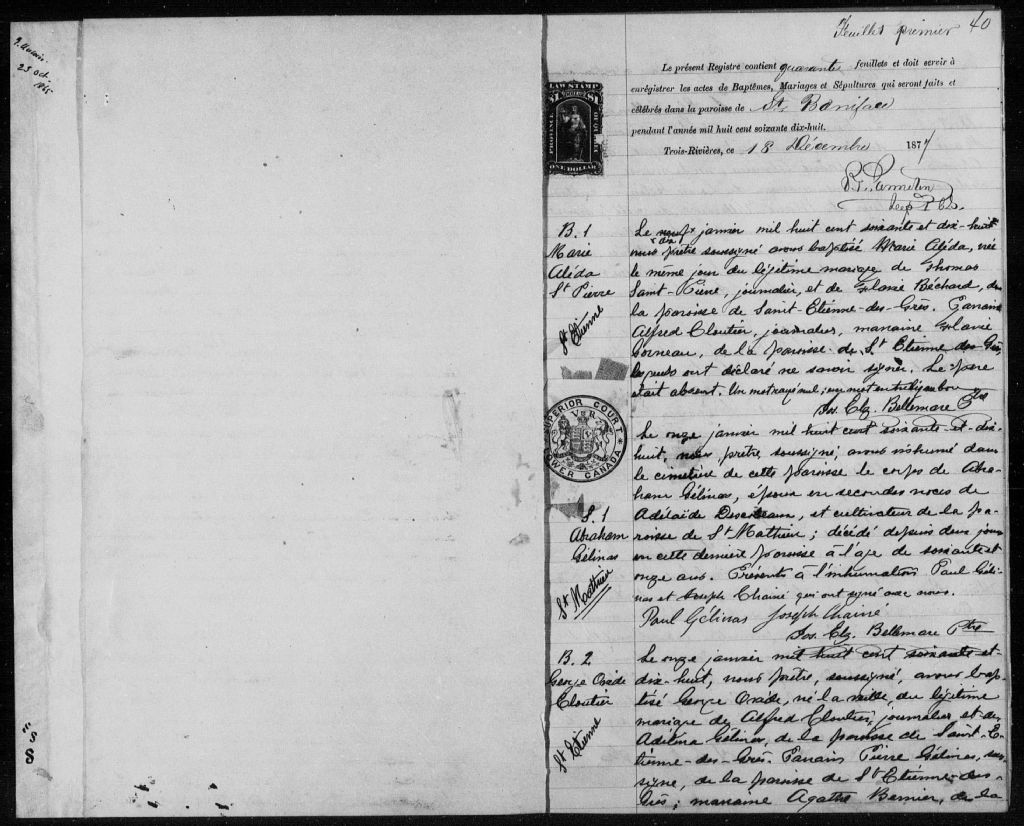 23 oct.
Feuillet premier 40
Le présent Registre contient quarante feuillets et doit servir à
enrégistrer les actes de Baptêmes, Mariages et Sépultures qui seront faits et
célébrés dans la paroisse de St. Boniface
pendant l'année mil huit cent soixante dix-huit.
Trois-Rivières, ce 18 Décembre 1877
LAW STAMP
PROVINCE OF QUEBEC
ONE DOLLAR
B. 1
Marie
Aléda
St Pierre
St Etienne
Le neuf janvier mil huit cent soixante et dix-huit
dix
nous prêtre soussigné avons baptisé Marie Aléda, née
le même jour du légitime mariage de Thomas
Saint-Pierre, journalier, et de Béchard, de
la paroisse de Saint-Etienne-des-Grès. Parrain
Alfred Cloutier, journalier, marraine
de la paroisse de St Etienne des Grès,
lesquels ont déclaré ne savoir signer. Le père
était absent. Un mot rayé nul; un mot entreligne bon
Jos. Elz. Bellemare Ptre
SUPERIOR COURT
V R
LOWER CANADA
S. 1
Abraham
Gélinas
St Mathieu
Le onze janvier mil huit cent soixante-et-dix-
huit, nous prêtre soussigné, avons inhumé dans
le cimetière de cette paroisse le corps de Abra-
ham Gélinas, époux en secondes noces de
Adélaïde Descoteaux, et cultivateur de la pa-
roisse de St Mathieu; décédé depuis deux jours
en cette dernière paroisse à l'age de soixante et
onze ans. Présents à l'inhumation Paul Géli-
nas et Joseph Chainé qui ont signé avec nous.
Paul Gélinas Joseph Chainé
Jos. Elz. Bellemare Ptre
B. 2
George Oxide
Cloutier
St Etienne
Le onze janvier mil huit cent soixante et
dix-huit, nous prêtre, soussigné, avons bap-
tisé George Oxide, né la veille, du légitime
mariage de Alfred Cloutier, journalier et de
Adelina Gélinas, de la paroisse de Saint-E-
tienne-des-Grès. Parrain Pierre Gélinas, sous-
signé, de la paroisse de St Etienne-des-
Grès; marraine Agathe Bernier, de la